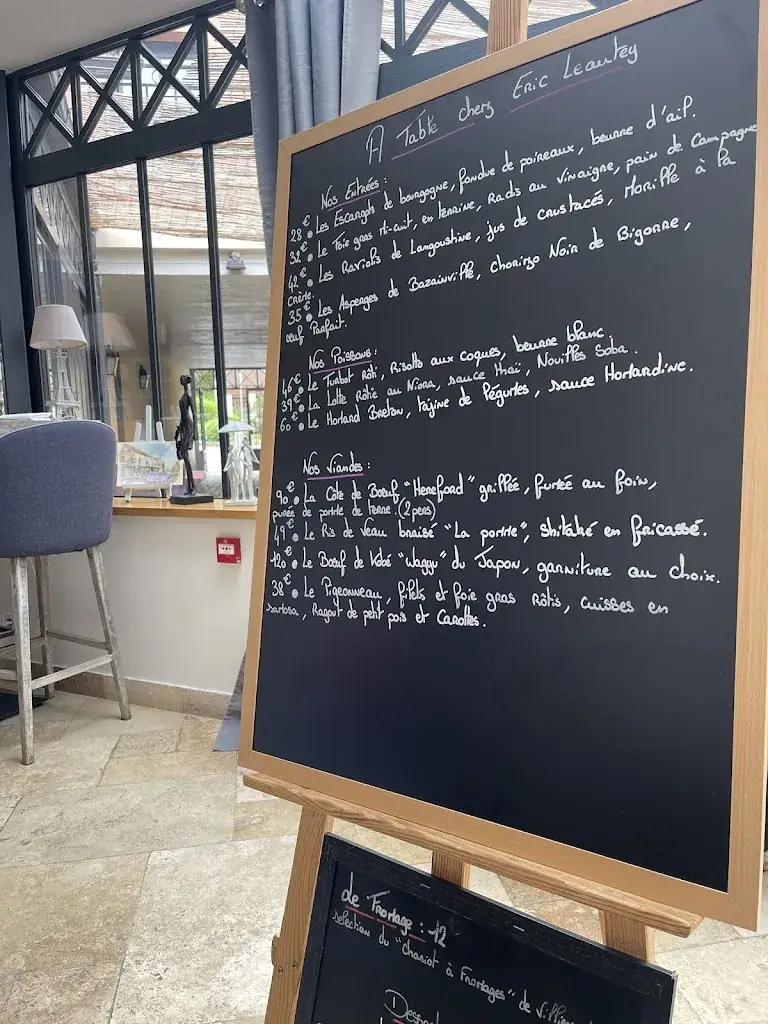 A Table chez Eric Leautey
Nos Entrées :
28€ • Les Escargots de bourgogne, fondue de poireaux, beurre d'ail.
32€ • Le Foie gras mi-cuit, en terrine, Radis au Vinaigre, pain de Campagne
42€ • Les Raviolis de Langoustine, jus de crustacés, Morille à la
crème.
35€ • Les Asperges de Bazainville, chorizo Noir de Bigorre,
oeuf Parfait.
Nos Poissons :
46€ • Le Turbot Rôti, Risotto aux coques, beurre blanc.
39€ • La Lotte Rôtie au Niora, sauce thaï, Nouilles Soba.
60€ • Le Homard Breton, tajine de Légumes, sauce Homardine.
Nos Viandes :
90€ • La Côte de Boeuf "Hereford" grillée, fumée au foin,
purée de pomme de terre. (2 pers)
49€ • Le Ris de Veau braisé "La pomme", shitaké en fricassé.
120€ • Le Boeuf de Kobé "Wagyu" du Japon, garniture au choix.
38€ • Le Pigeonneau, filets et foie gras Rôtis, cuisses en
samossa, Ragout de petit pois et Carottes.
Le Fromage : 12
selection du "Chariot à Fromages" de